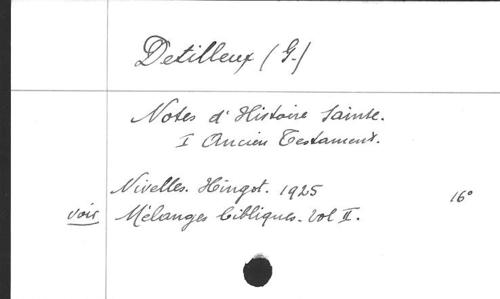 Detilleux (G.)
Notes d'Histoire Sainte.
I Ancien Testament.
Nivelles. Hingot. 1925 16°
voir Mélanges bibliques. Vol II.